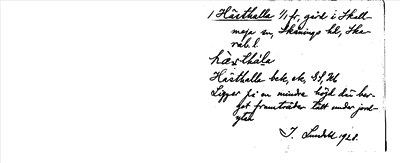 1 Hästhalla 1/1 fr, gård i Skall-
meja sn, Skånings hd, Ska-
rab. l.
Hästhalla bek,
Ligger på en mindre höjd där ber-
get framträder tätt under jord-
ytan
I. Lundell 1928.